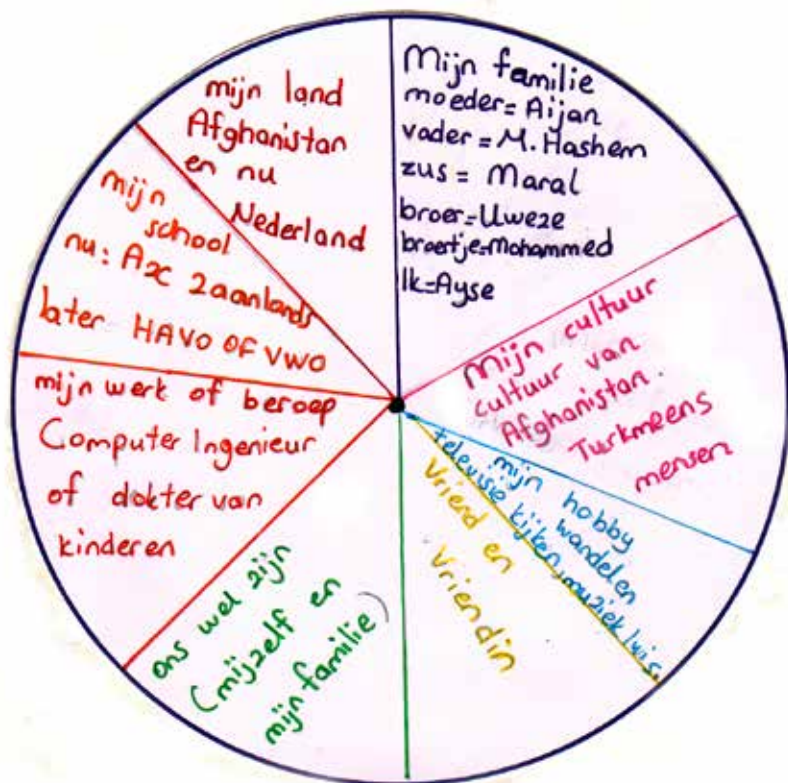 Mijn familie
moeder = Aijan
vader = M. Hashem
zus = Maral
broer = Uweze
broertje = Mohammed
Ik = Ayse
Mijn cultuur
cultuur van
Afghanistan.
Turkmeens
mensen
mijn hobby
wandelen
televisie kijken, muziek luis.
Vriend en
Vriendin
ons wel zijn
(mijzelf en
mijn familie)
mijn werk of beroep
Computer Ingenieur
of dokter van
kinderen
mijn
school
nu: A2C 2aanlands
later HAVO OF VWO
mijn land
Afghanistan
en nu
Nederland